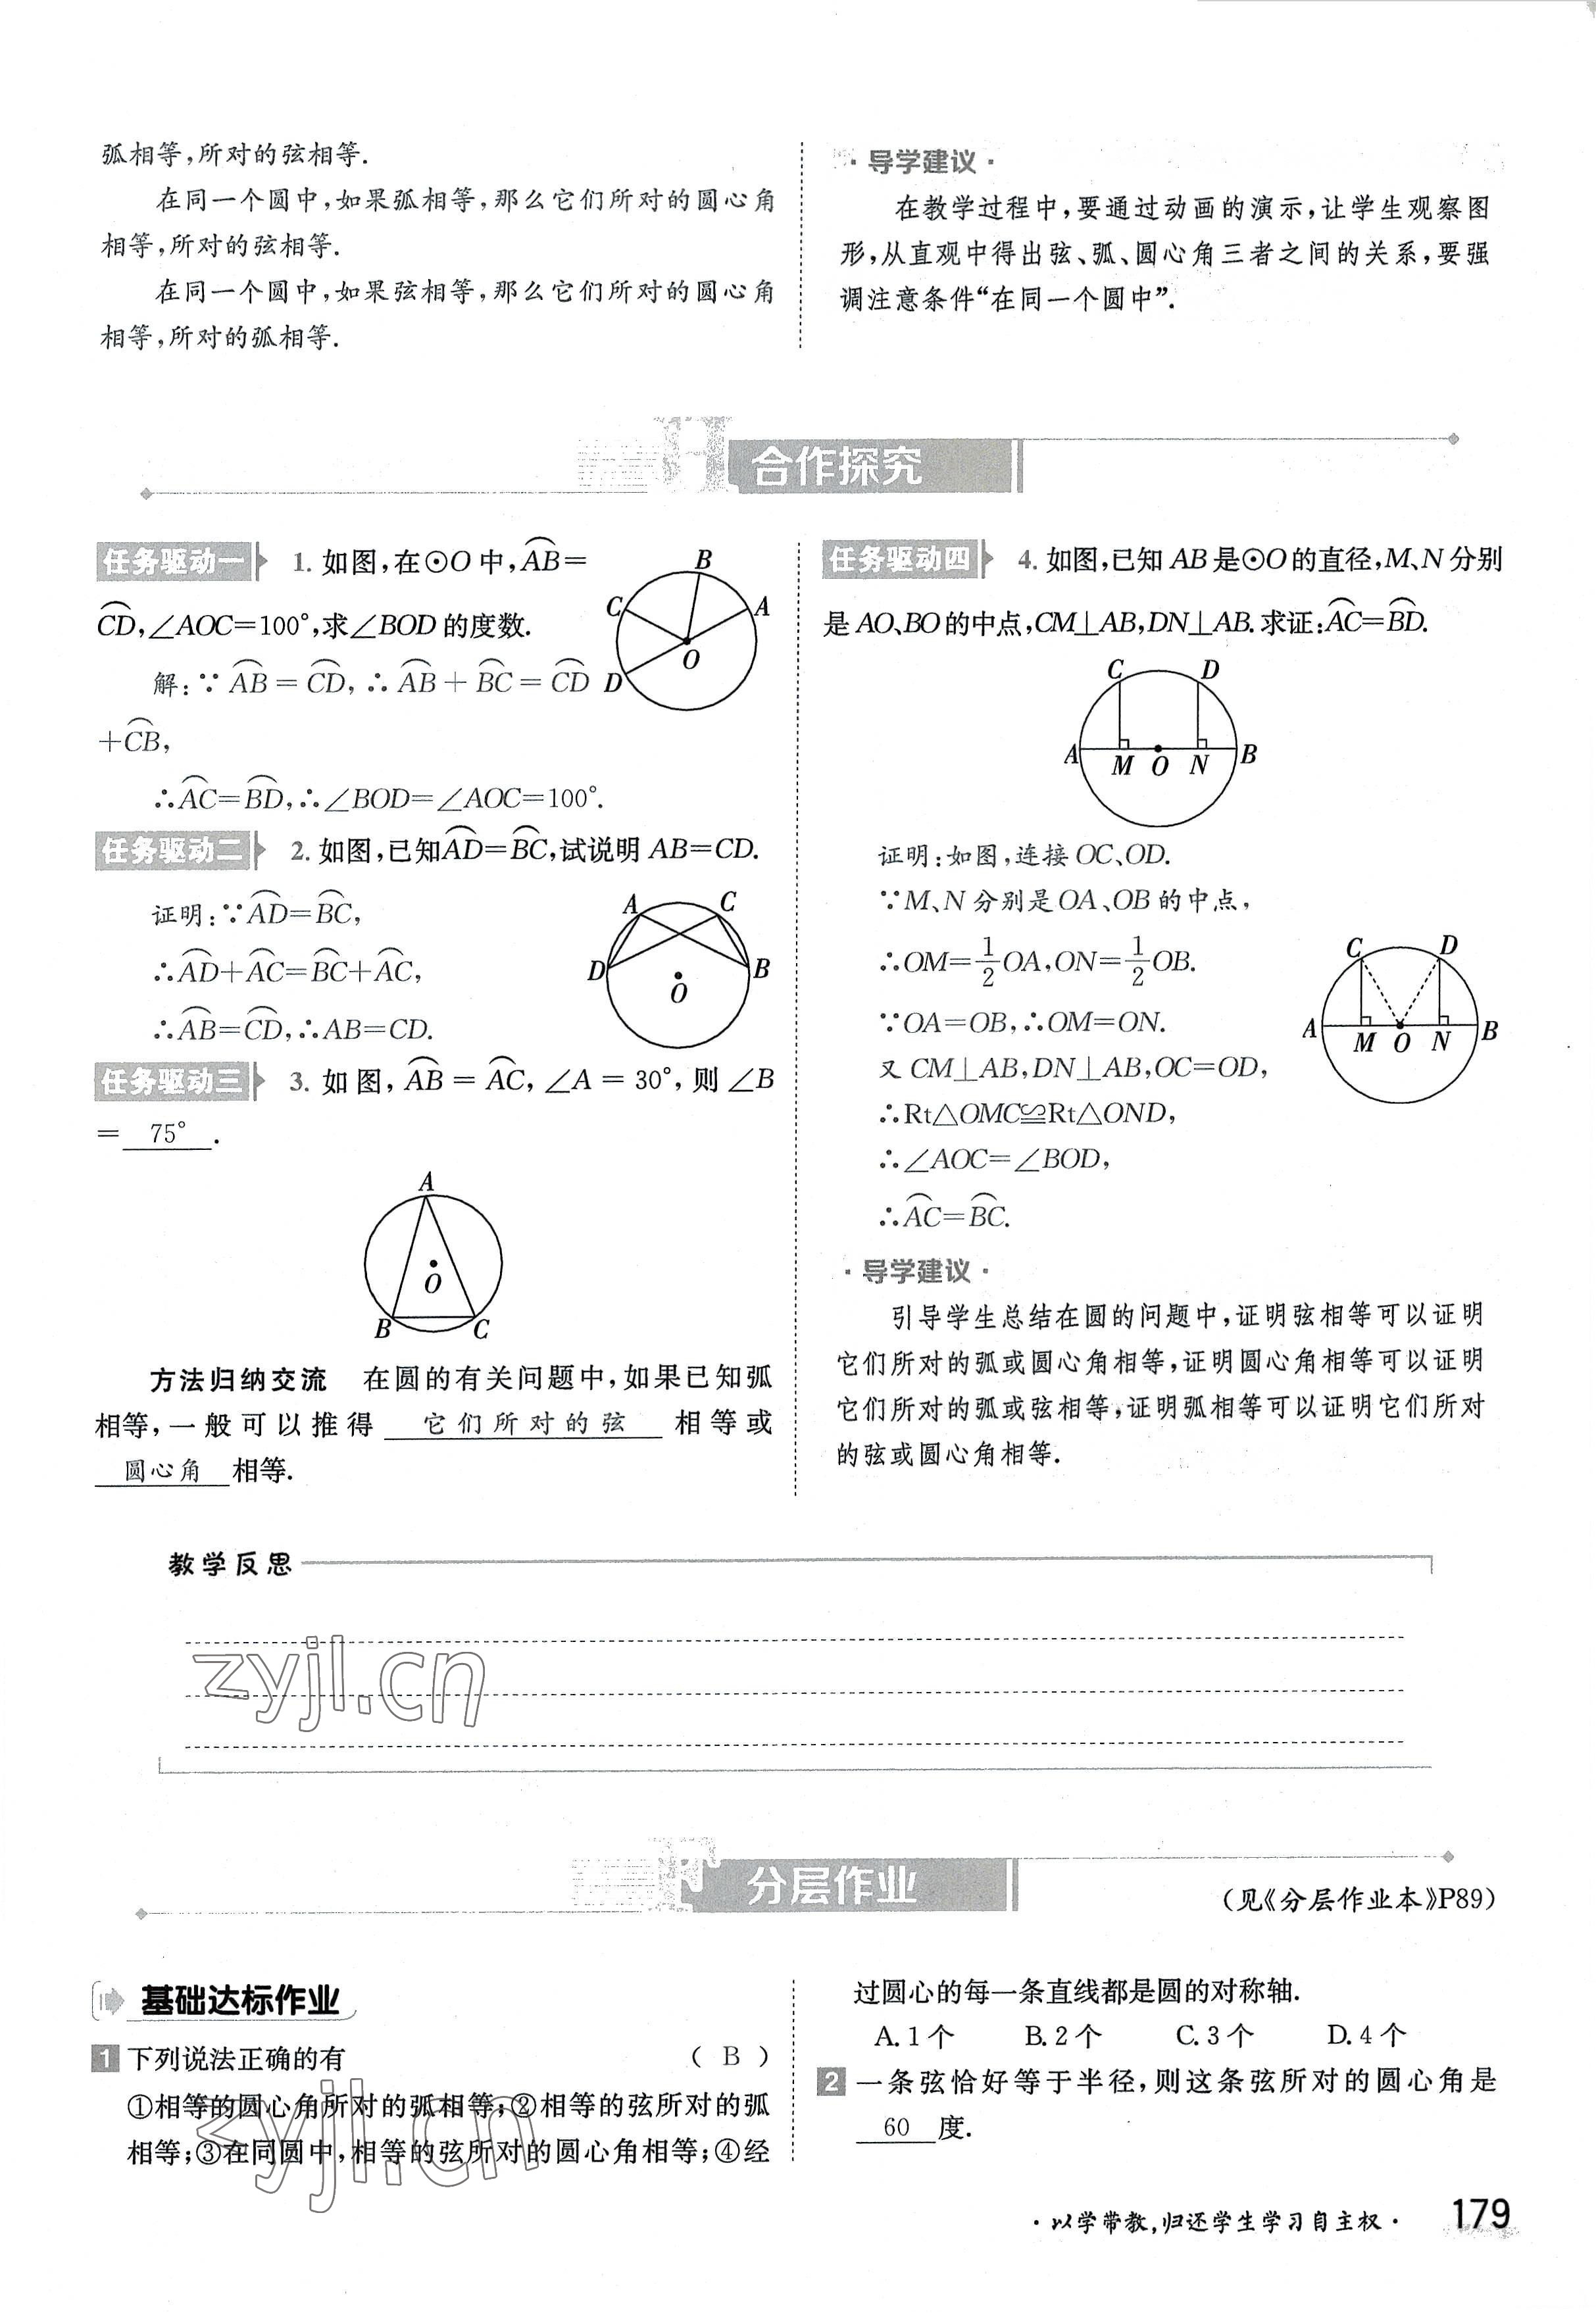 弧相等,所对的弦相等.
在同一个圆中,如果弧相等,那么它们所对的圆心角
相等,所对的弦相等.
在同一个圆中,如果弦相等,那么它们所对的圆心角
相等,所对的弧相等.
·导学建议·
在教学过程中,要通过动画的演示,让学生观察图
形,从直观中得出弦、弧、圆心角三者之间的关系,要强
调注意条件“在同一个圆中”.
合作探究
任务驱动一 1. 如图,在⊙O 中,⌒AB=
⌒CD,∠AOC=100°,求∠BOD 的度数.
B
C
A
O
D
解:∵⌒AB=⌒CD,∴⌒AB+⌒BC=⌒CD
+⌒CB,
∴⌒AC=⌒BD,∴∠BOD=∠AOC=100°.
任务驱动二 2. 如图,已知⌒AD=⌒BC,试说明 AB=CD.
证明:∵⌒AD=⌒BC,
∴⌒AD+⌒AC=⌒BC+⌒AC,
∴⌒AB=⌒CD,∴AB=CD.
A
C
D
B
O
任务驱动三 3. 如图,⌒AB=⌒AC,∠A=30°,则∠B
= 75° .
A
O
B
C
方法归纳交流 在圆的有关问题中,如果已知弧
相等,一般可以推得 它们所对的弦 相等或
圆心角 相等.
任务驱动四 4. 如图,已知 AB 是⊙O 的直径,M、N 分别
是 AO、BO 的中点,CM⊥AB,DN⊥AB.求证:⌒AC=⌒BD.
C D
A M O N B
证明:如图,连接 OC、OD.
∵M、N 分别是 OA、OB 的中点,
∴OM=1/2OA,ON=1/2OB.
∵OA=OB,∴OM=ON.
又 CM⊥AB,DN⊥AB,OC=OD,
∴Rt△OMC≌Rt△OND,
∴∠AOC=∠BOD,
∴⌒AC=⌒BC.
C D
A M O N B
·导学建议·
引导学生总结在圆的问题中,证明弦相等可以证明
它们所对的弧或圆心角相等,证明圆心角相等可以证明
它们所对的弧或弦相等,证明弧相等可以证明它们所对
的弦或圆心角相等.
教学反思
zyjl.cn
分层作业
(见《分层作业本》P89)
基础达标作业
1 下列说法正确的有 ( B )
①相等的圆心角所对的弧相等;②相等的弦所对的弧
相等;③在同圆中,相等的弦所对的圆心角相等;④经
zyjl.cn
过圆心的每一条直线都是圆的对称轴.
A. 1个 B. 2个 C. 3个 D. 4个
2 一条弦恰好等于半径,则这条弦所对的圆心角是
60 度.
·以学带教,归还学生学习自主权· 179